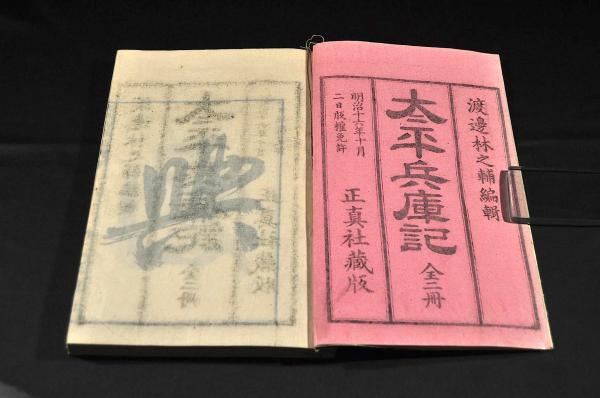 渡邊林之輔編輯
太平兵庫記
全二冊
明治十六年十月
二日版權免許
正真社藏版